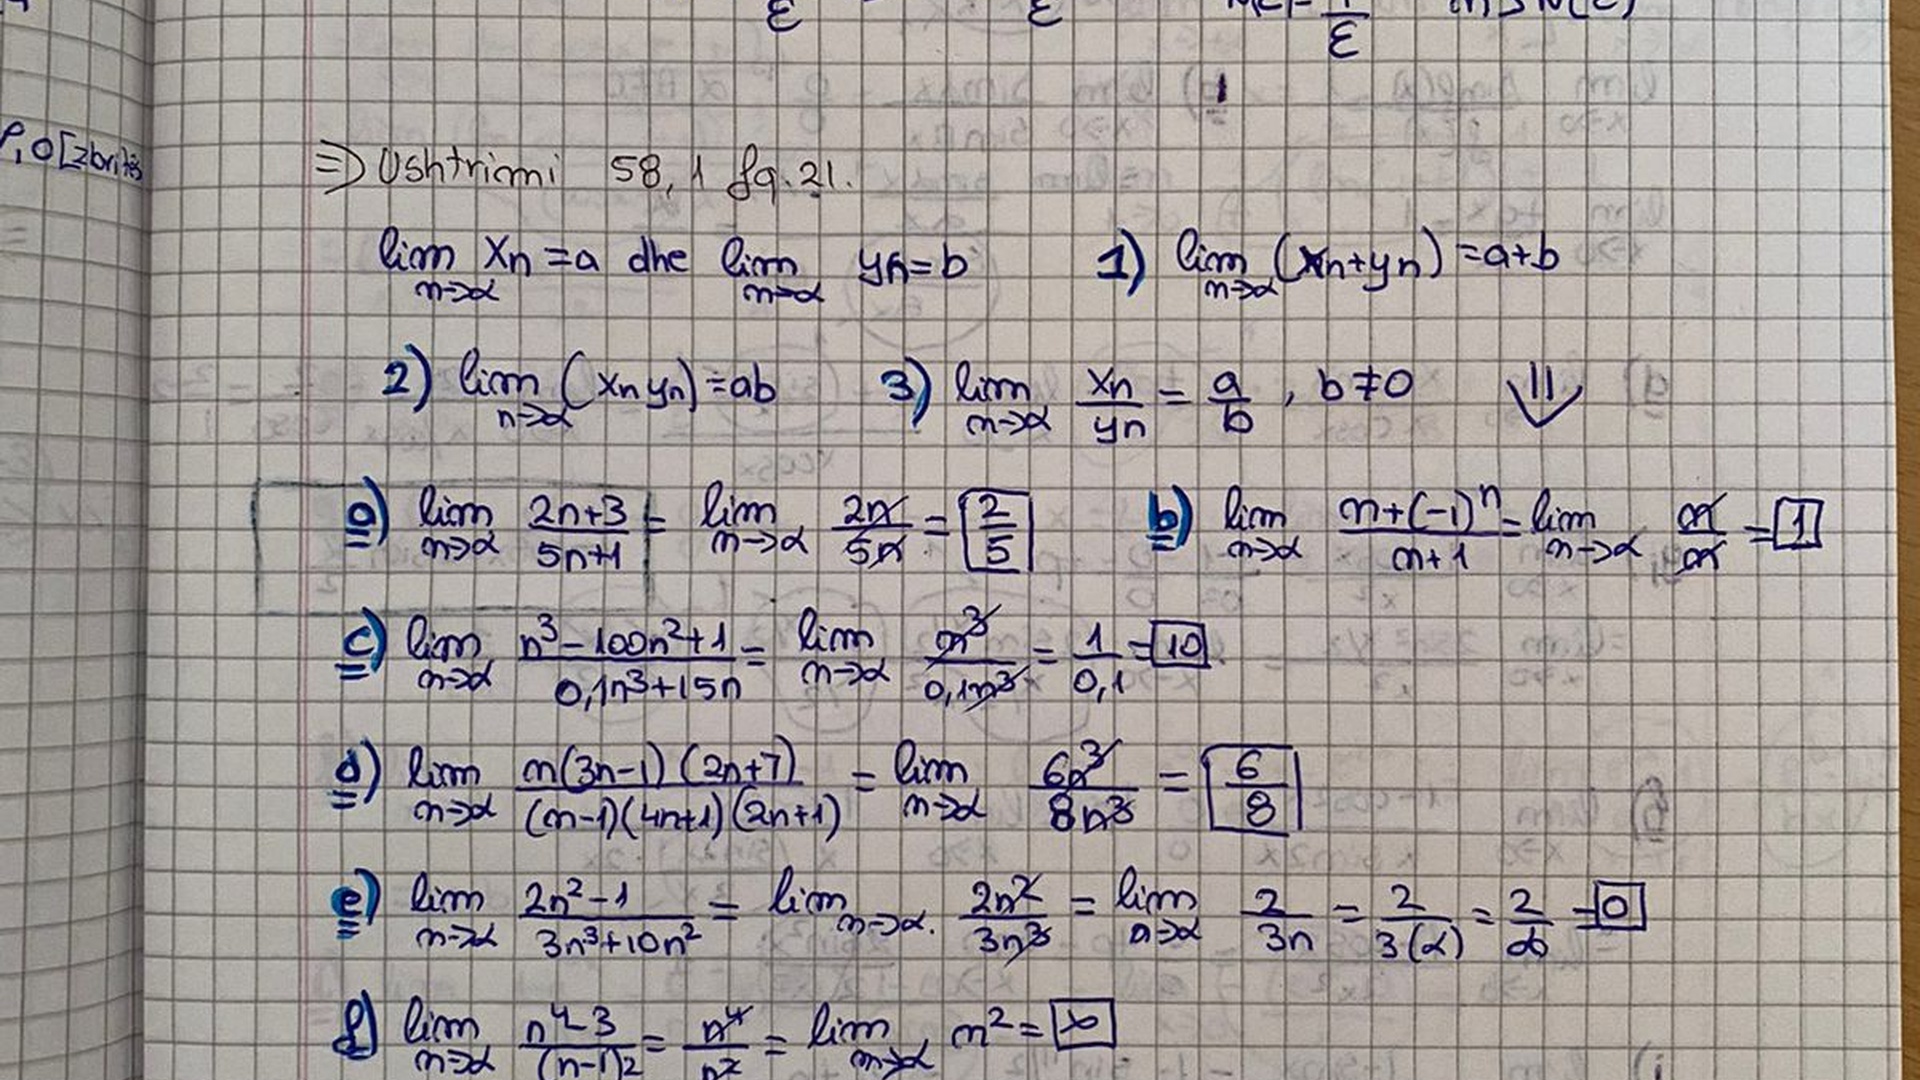 ε ε ε
⇒ Ushtrimi 58,1 fq.21.
lim n→∞ xn = a dhe lim n→∞ yn = b 1) lim n→∞ (xn+yn) = a+b
2) lim n→∞ (xn yn) = ab 3) lim n→∞ xn/yn = a/b , b ≠ 0 ⇓
a) lim n→∞ (2n+3)/(5n+1) = lim n→∞ 2n/5n = 2/5 b) lim n→∞ (n+(-1)^n)/(n+1) = lim n→∞ n/n = 1
c) lim n→∞ (n³-100n²+1)/(0,1n³+15n) = lim n→∞ n³/0,1n³ = 1/0,1 = 10
d) lim n→∞ n(3n-1)(2n+7)/(n-1)(4n+1)(2n+1) = lim n→∞ 6n³/8n³ = 6/8
e) lim n→∞ (2n²-1)/(3n³+10n²) = lim n→∞. 2n²/3n³ = lim n→∞ 2/3n = 2/3(∞) = 2/∞ = 0
f) lim n→∞ (n⁴-3)/(n-1)2 = n⁴/n² = lim n→∞ n² = ∞